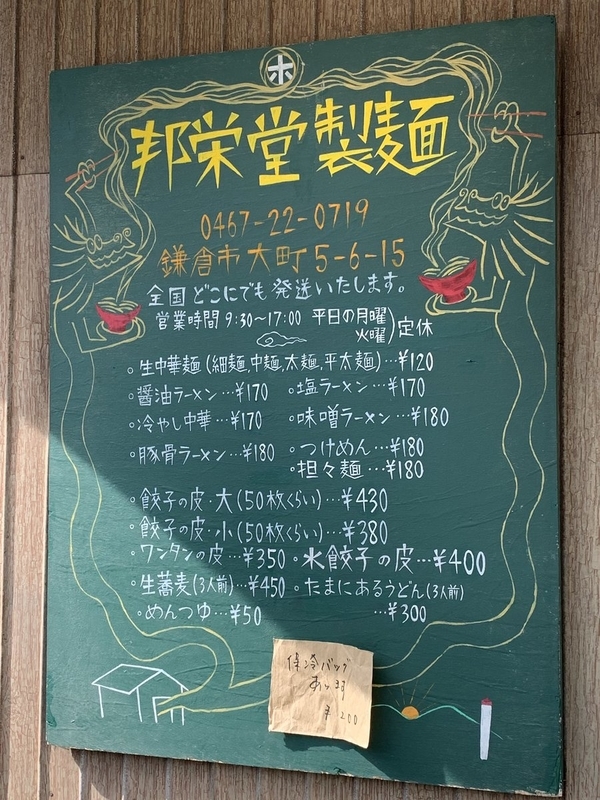 ホ
邦栄堂製麺
0467-22-0719
鎌倉市大町5-6-15
全国どこにでも発送いたします。
営業時間 9:30〜17:00 平日の月曜
火曜)定休
◦生中華麺(細麺,中麺,太麺,平太麺)…¥120
◦醤油ラーメン…¥170 ◦塩ラーメン…¥170
◦冷やし中華…¥170 ◦味噌ラーメン…¥180
◦豚骨ラーメン…¥180 ◦つけめん…¥180
◦担々麺…¥180
◦餃子の皮・大(50枚くらい)…¥430
◦餃子の皮・小(50枚くらい)…¥380
◦ワンタンの皮…¥350 ◦水餃子の皮…¥400
◦生蕎麦(3人前)…¥450 ◦たまにあるうどん(3人前)
◦めんつゆ…¥50 …¥300
保冷バッグ
あります
¥200